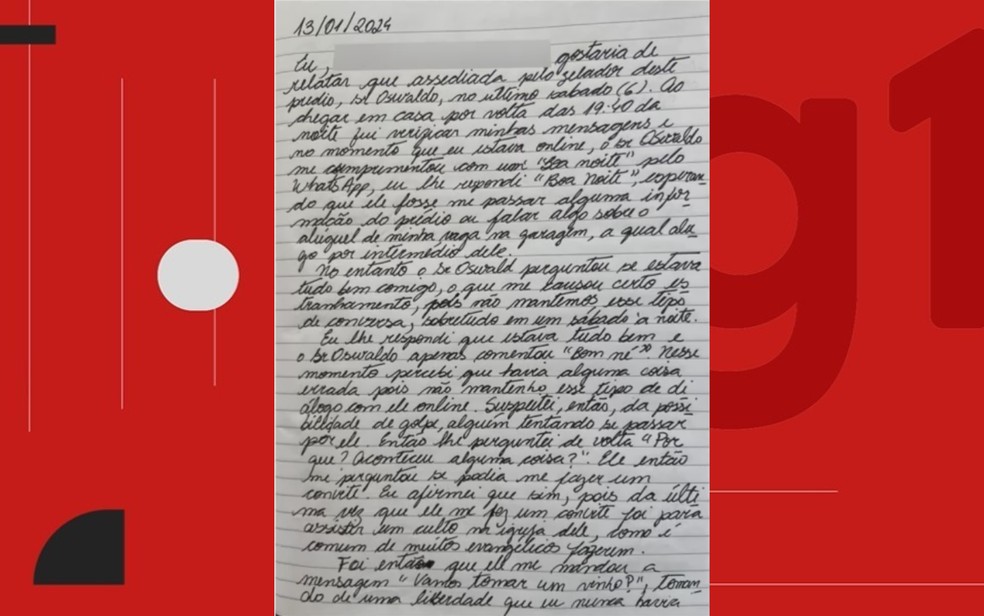 13/01/2024
Eu, gostaria de
relatar que assediada pelo zelador deste
prédio, Sr Oswaldo, no último sábado (6). Ao
chegar em casa por volta das 19:40 da
noite fui verificar minhas mensagens e
no momento que eu estava online, o Sr Oswaldo
me cumprimentou com um "Boa noite" pelo
WhatsApp, eu lhe repondi "Boa Noite", esperan-
do que ele fosse me passar alguma infor
mação do prédio ou falar algo sobre o
aluguel de minha vaga na garagem, a qual alu-
go por intermédio dele.
No entanto o Sr Oswald perguntou se estava
tudo bem comigo, o que me causou certo es
tranhamento, pois não mantemos esse tipo
de conversa, sobretudo em um sábado à noite.
Eu lhe respondi que estava tudo bem e
o Sr Oswaldo apenas comentou "Bom né". Nesse
momento percebi que havia alguma coisa
errada pois não mantenho esse tipo de di
álogo com ele online. Suspeitei, então, da possi
bilidade de golpe, alguém tentando se passar
por ele. Então lhe perguntei de volta "Por
que? Aconteceu alguma coisa?". Ele então
me perguntou se podia me fazer um
convite. Eu afirmei que sim, pois da últi
ma vez que ele me fez um convite foi para
assistir um culto na igreja dele, como é
comum de muitos evangélicos fazerem.
Foi então que ele me mandou a
mensagem "Vamos tomar um vinho?", toman
do de uma liberdade que eu nunca havia
g1